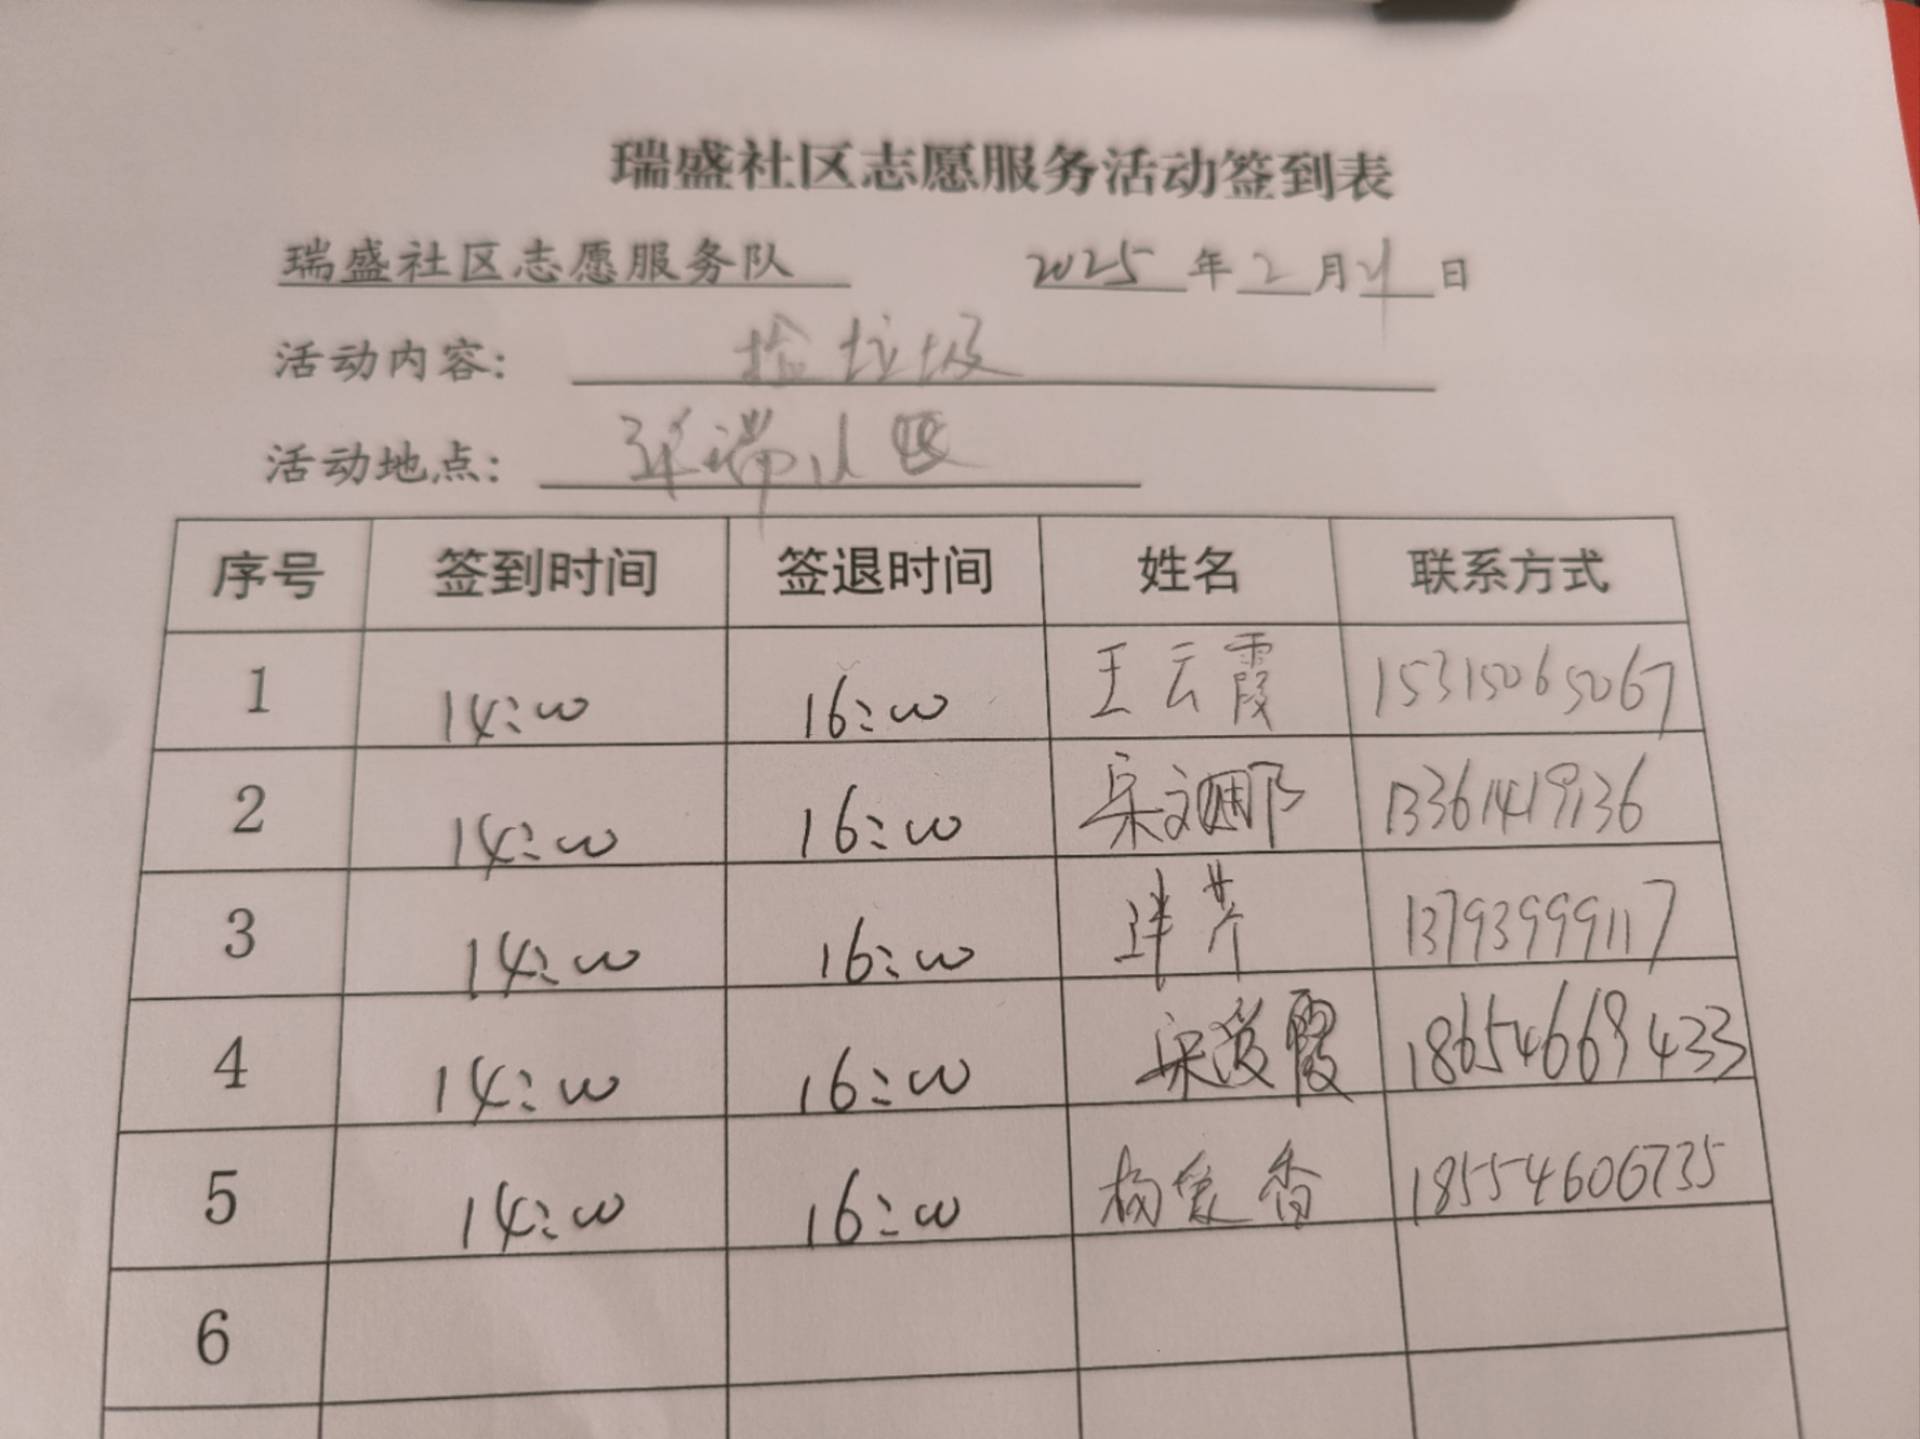 瑞盛社区志愿服务活动签到表
瑞盛社区志愿服务队 2025年2月21日
活动内容: 捡垃圾
活动地点: 瑞小区
序号 签到时间 签退时间 姓名 联系方式
1 14:00 16:00 王云霞 15315065067
2 14:00 16:00 宋文娜 13361419136
3 14:00 16:00 13793999117
4 14:00 16:00 宋爱霞 18654669433
5 14:00 16:00 杨爱香 18554606735
6